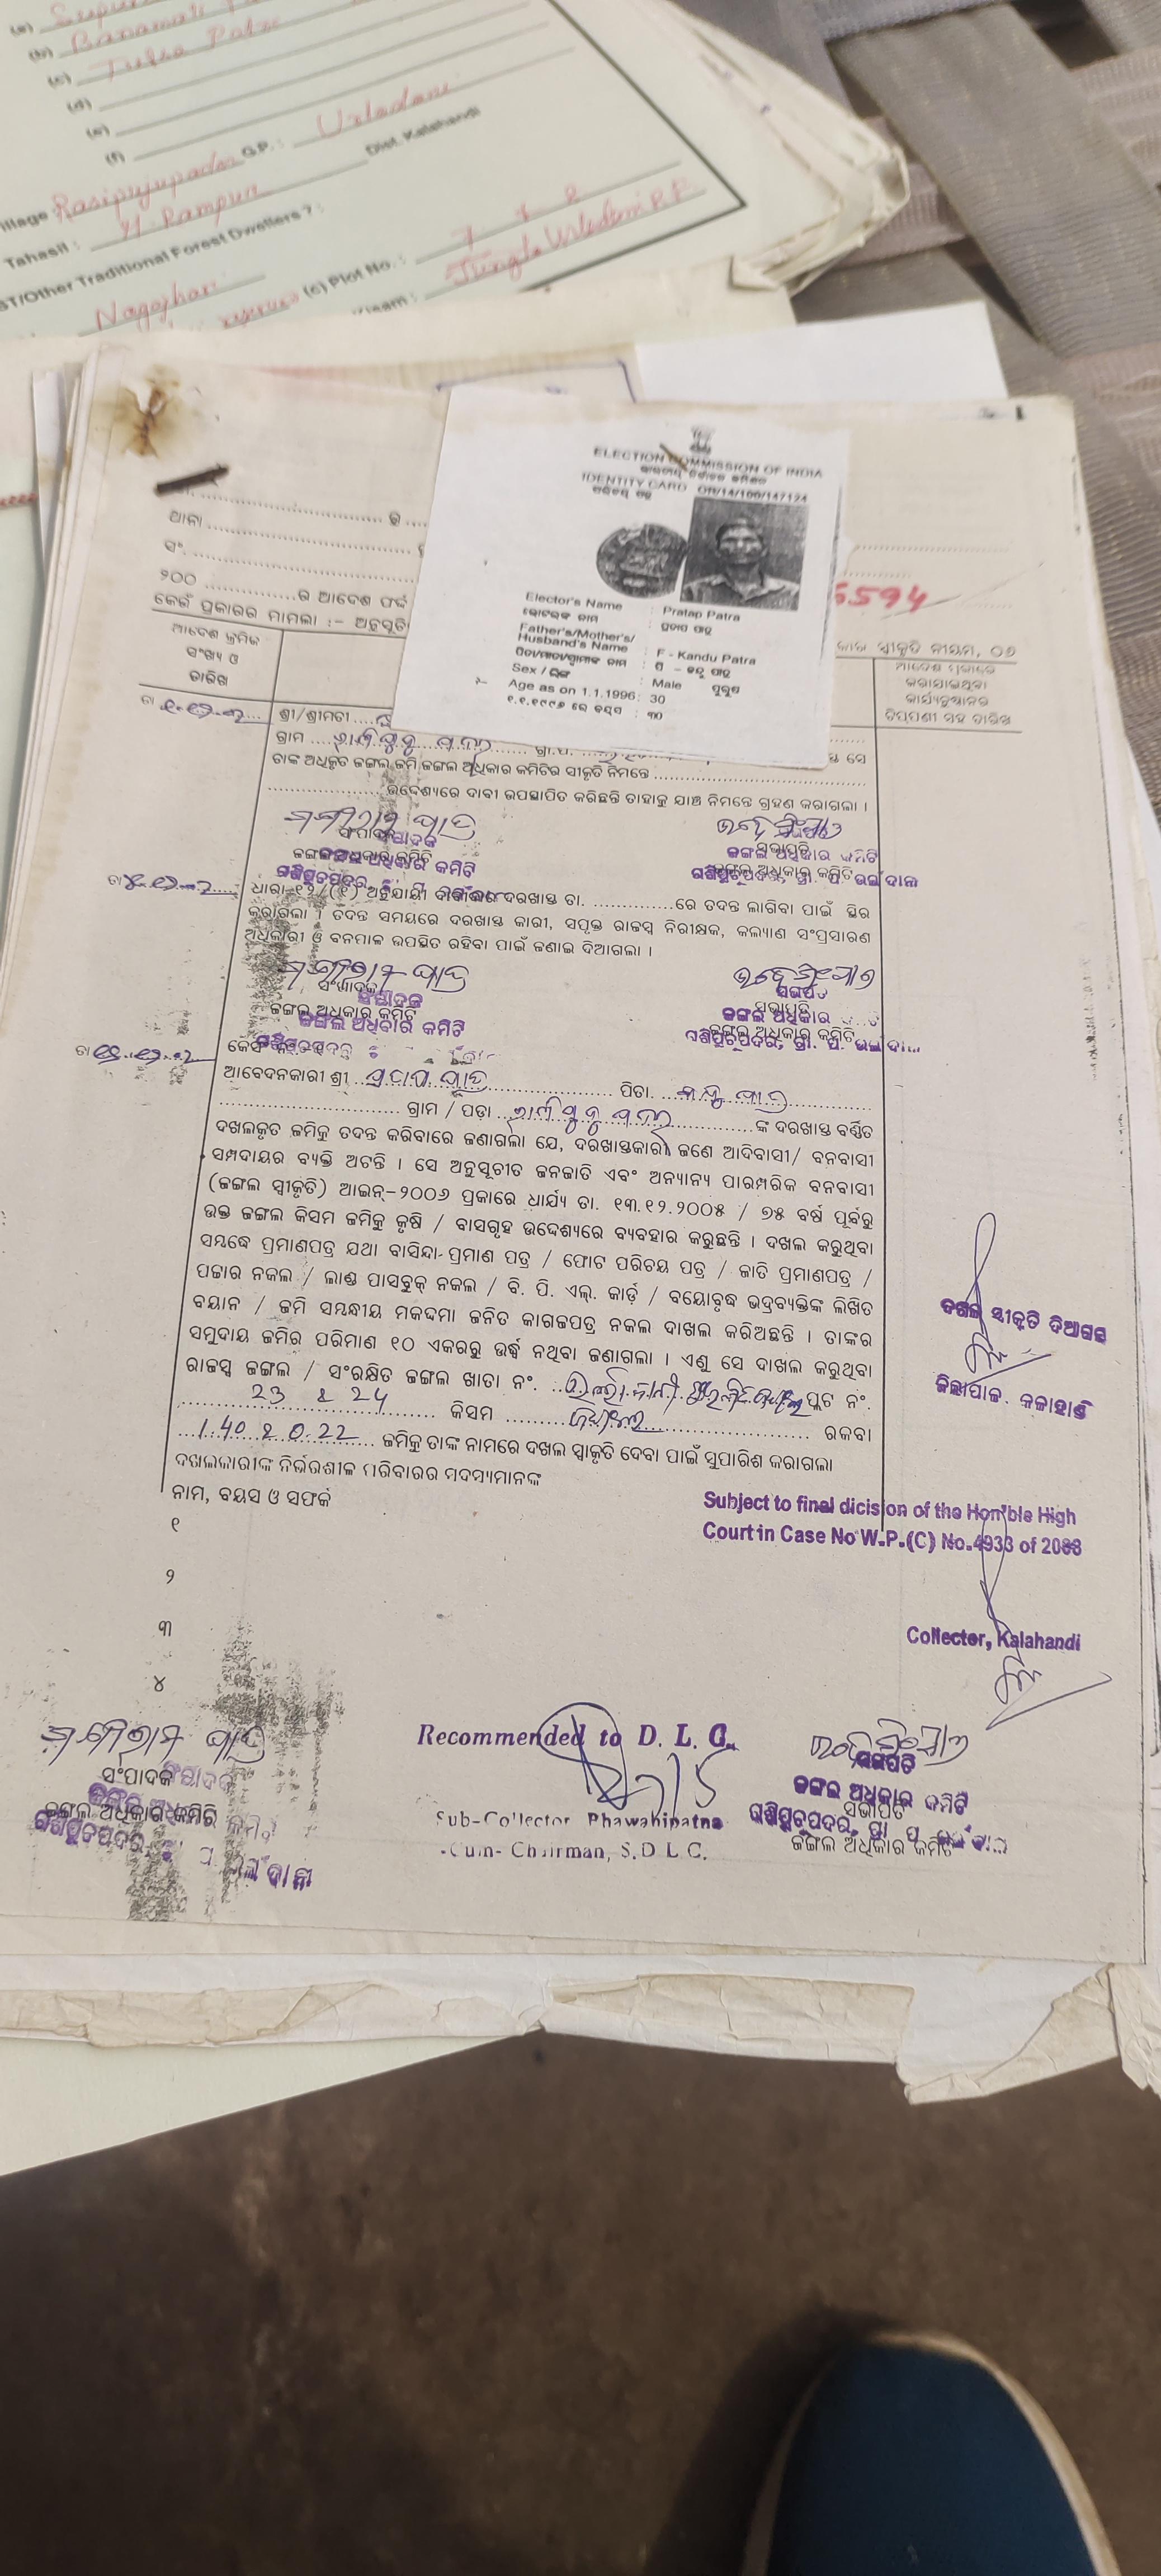 (a)
(b) Banamali
(c) Tulsa Patra
(d)
(e)
(f)
G.P. : Urladani
Village Rasipujupadar
Dist. Kalahandi
Tahasil : M. Rampur
ST/Other Traditional Forest Dwellers ? :
Nagajhari (c) Plot No. : 7
Kisam : Jungle Urladani R.F
ELECTION COMMISSION OF INDIA
ଭାରତୀୟ ନିର୍ବାଚନ କମିଶନ
IDENTITY CARD OR/14/100/147124
ପରିଚୟ ପତ୍ର
Elector's Name : Pratap Patra
ଭୋଟରଙ୍କ ନାମ : ପ୍ରତାପ ପାତ୍ର
Father's/Mother's/
Husband's Name : F - Kandu Patra
ପିତା/ମାତା/ସ୍ୱାମୀଙ୍କ ନାମ : ପି - କନ୍ଦୁ ପାତ୍ର
Sex / ଲିଙ୍ଗ : Male ପୁରୁଷ
Age as on 1.1.1996 : 30
୧.୧.୧୯୯୬ ରେ ବୟସ : ୩୦
ଥାନା
ସଂ.
୨୦୦ ର ଆଦେଶ ଫର୍ଦ୍ଦ
6594
କେଉଁ ପ୍ରକାରର ମାମଲା :- ଅନୁସୂଚି
ସ୍ୱୀକୃତି ନୀୟମ, ୦୬
ଆଦେଶ କ୍ରମିକ
ସଂଖ୍ୟା ଓ
ତାରିଖ
ଆଦେଶ ପ୍ରକାରେ
କରାଯାଇଥିବା
କାର୍ଯ୍ୟାନୁଷ୍ଠାନର
ଟିପ୍ପଣୀ ସହ ତାରିଖ
ତା
ଶ୍ରୀ/ଶ୍ରୀମତୀ
ଗ୍ରାମ ସେ
ତାଙ୍କ ଅଧିକୃତ ଜଙ୍ଗଲ ଜମି ଜଙ୍ଗଲ ଅଧିକାର କମିଟିର ସୀକୃତି ନିମନ୍ତେ
ଉଦ୍ଦେଶ୍ୟରେ ଦାବୀ ଉପସ୍ଥାପିତ କରିଛନ୍ତି ତାହାକୁ ଯାଞ୍ଚ ନିମନ୍ତେ ଗ୍ରହଣ କରାଗଲା ।
ସଂପାଦକ
ଜଙ୍ଗଲ ଅଧିକାର କମିଟି
ସଭାପତି
ଜଙ୍ଗଲ ଅଧିକାର କମିଟି
ତା
ଧାରା-୧୨/(୧) ଅନୁଯାୟୀ ଦରଖାସ୍ତ ତା. ରେ ତଦନ୍ତ ଲାଗିବା ପାଇଁ ସ୍ଥିର
କରାଗଲା । ତଦନ୍ତ ସମୟରେ ଦରଖାସ୍ତ କାରୀ, ସପୃକ୍ତ ରାଜସ୍ୱ ନିରୀକ୍ଷକ, କଲ୍ୟାଣ ସଂପ୍ରସାରଣ
ଅଧିକାରୀ ଓ ବନପାଳ ଉପସ୍ଥିତ ରହିବା ପାଇଁ ଜଣାଇ ଦିଆଗଲା ।
ସଂପାଦକ
ଜଙ୍ଗଲ ଅଧିକାର କମିଟି
ସଭାପତି
ଜଙ୍ଗଲ ଅଧିକାର କମିଟି
ତା
ଆବେଦନକାରୀ ଶ୍ରୀ ପ୍ରତାପ ପାତ୍ର ପିତା. କନ୍ଦୁ ପାତ୍ର
ଗ୍ରାମ / ପଡ଼ା ଙ୍କ ଦରଖାସ୍ତ ବର୍ଣ୍ଣିତ
ଦଖଲକୃତ ଜମିକୁ ତଦନ୍ତ କରିବାରେ ଜଣାଗଲା ଯେ, ଦରଖାସ୍ତକାରୀ ଜଣେ ଆଦିବାସୀ/ ବନବାସୀ
ସମ୍ପଦାୟର ବ୍ୟକ୍ତି ଅଟନ୍ତି । ସେ ଅନୁସୂଚୀତ ଜନଜାତି ଏବଂ ଅନ୍ୟାନ୍ୟ ପାରମ୍ପରିକ ବନବାସୀ
(ଜଙ୍ଗଲ ସ୍ୱୀକୃତି) ଆଇନ୍-୨୦୦୬ ପ୍ରକାରେ ଧାର୍ଯ୍ୟ ତା. ୧୩.୧୨.୨୦୦୫ / ୭୫ ବର୍ଷ ପୂର୍ବରୁ
ଉକ୍ତ ଜଙ୍ଗଲ କିସମ ଜମିକୁ କୃଷି / ବାସଗୃହ ଉଦ୍ଦେଶ୍ୟରେ ବ୍ୟବହାର କରୁଛନ୍ତି । ଦଖଲ କରୁଥିବା
ସମ୍ବନ୍ଧେ ପ୍ରମାଣପତ୍ର ଯଥା ବାସିନ୍ଦା ପ୍ରମାଣ ପତ୍ର / ଫୋଟ ପରିଚୟ ପତ୍ର / ଜାତି ପ୍ରମାଣପତ୍ର /
ପଟ୍ଟାର ନକଲ / ଲାଣ୍ଡ ପାସବୁକ୍ ନକଲ / ବି. ପି. ଏଲ୍. କାର୍ଡ଼ / ବୟୋବୃଦ୍ଧ ଭଦ୍ରବ୍ୟକ୍ତିଙ୍କ ଲିଖିତ
ବୟାନ / ଜମି ସମ୍ବନ୍ଧୀୟ ମକଦ୍ଦମା ଜନିତ କାଗଜପତ୍ର ନକଲ ଦାଖଲ କରିଅଛନ୍ତି । ତାଙ୍କର
ସମୁଦାୟ ଜମିର ପରିମାଣ ୧୦ ଏକରରୁ ଉର୍ଦ୍ଧ୍ୱ ନଥିବା ଜଣାଗଲା । ଏଣୁ ସେ ଦାଖଲ କରୁଥିବା
ରାଜସ୍ୱ ଜଙ୍ଗଲ / ସଂରକ୍ଷିତ ଜଙ୍ଗଲ ଖାତା ନଂ. ପ୍ଲଟ ନଂ.
23 & 24 କିସମ ଜଙ୍ଗଲ ରକବା
1.40 & 0.22 ଜମିକୁ ତାଙ୍କ ନାମରେ ଦଖଲ ସ୍ୱୀକୃତି ଦେବା ପାଇଁ ସୁପାରିଶ କରାଗଲା
ଦଖଲକାରୀଙ୍କ ନିର୍ଭରଶୀଳ ପରିବାରର ସଦସ୍ୟମାନଙ୍କ
ନାମ, ବୟସ ଓ ସମ୍ପର୍କ
ଦଖଲ ସ୍ୱୀକୃତି ଦିଆଗଲା
ଜିଲ୍ଲାପାଳ, କଳାହାଣ୍ଡି
Subject to final dicision of the Hon'ble High
Court in Case No W.P.(C) No.4933 of 2008
୧
୨
୩
୪
Collector, Kalahandi
Recommended to D. L. C.
Sub-Collector Bhawanipatna
-Cum- Chairman, S.D.L.C.
ସଂପାଦକ
ଜଙ୍ଗଲ ଅଧିକାର କମିଟି
ସଭାପତି
ଜଙ୍ଗଲ ଅଧିକାର କମିଟି